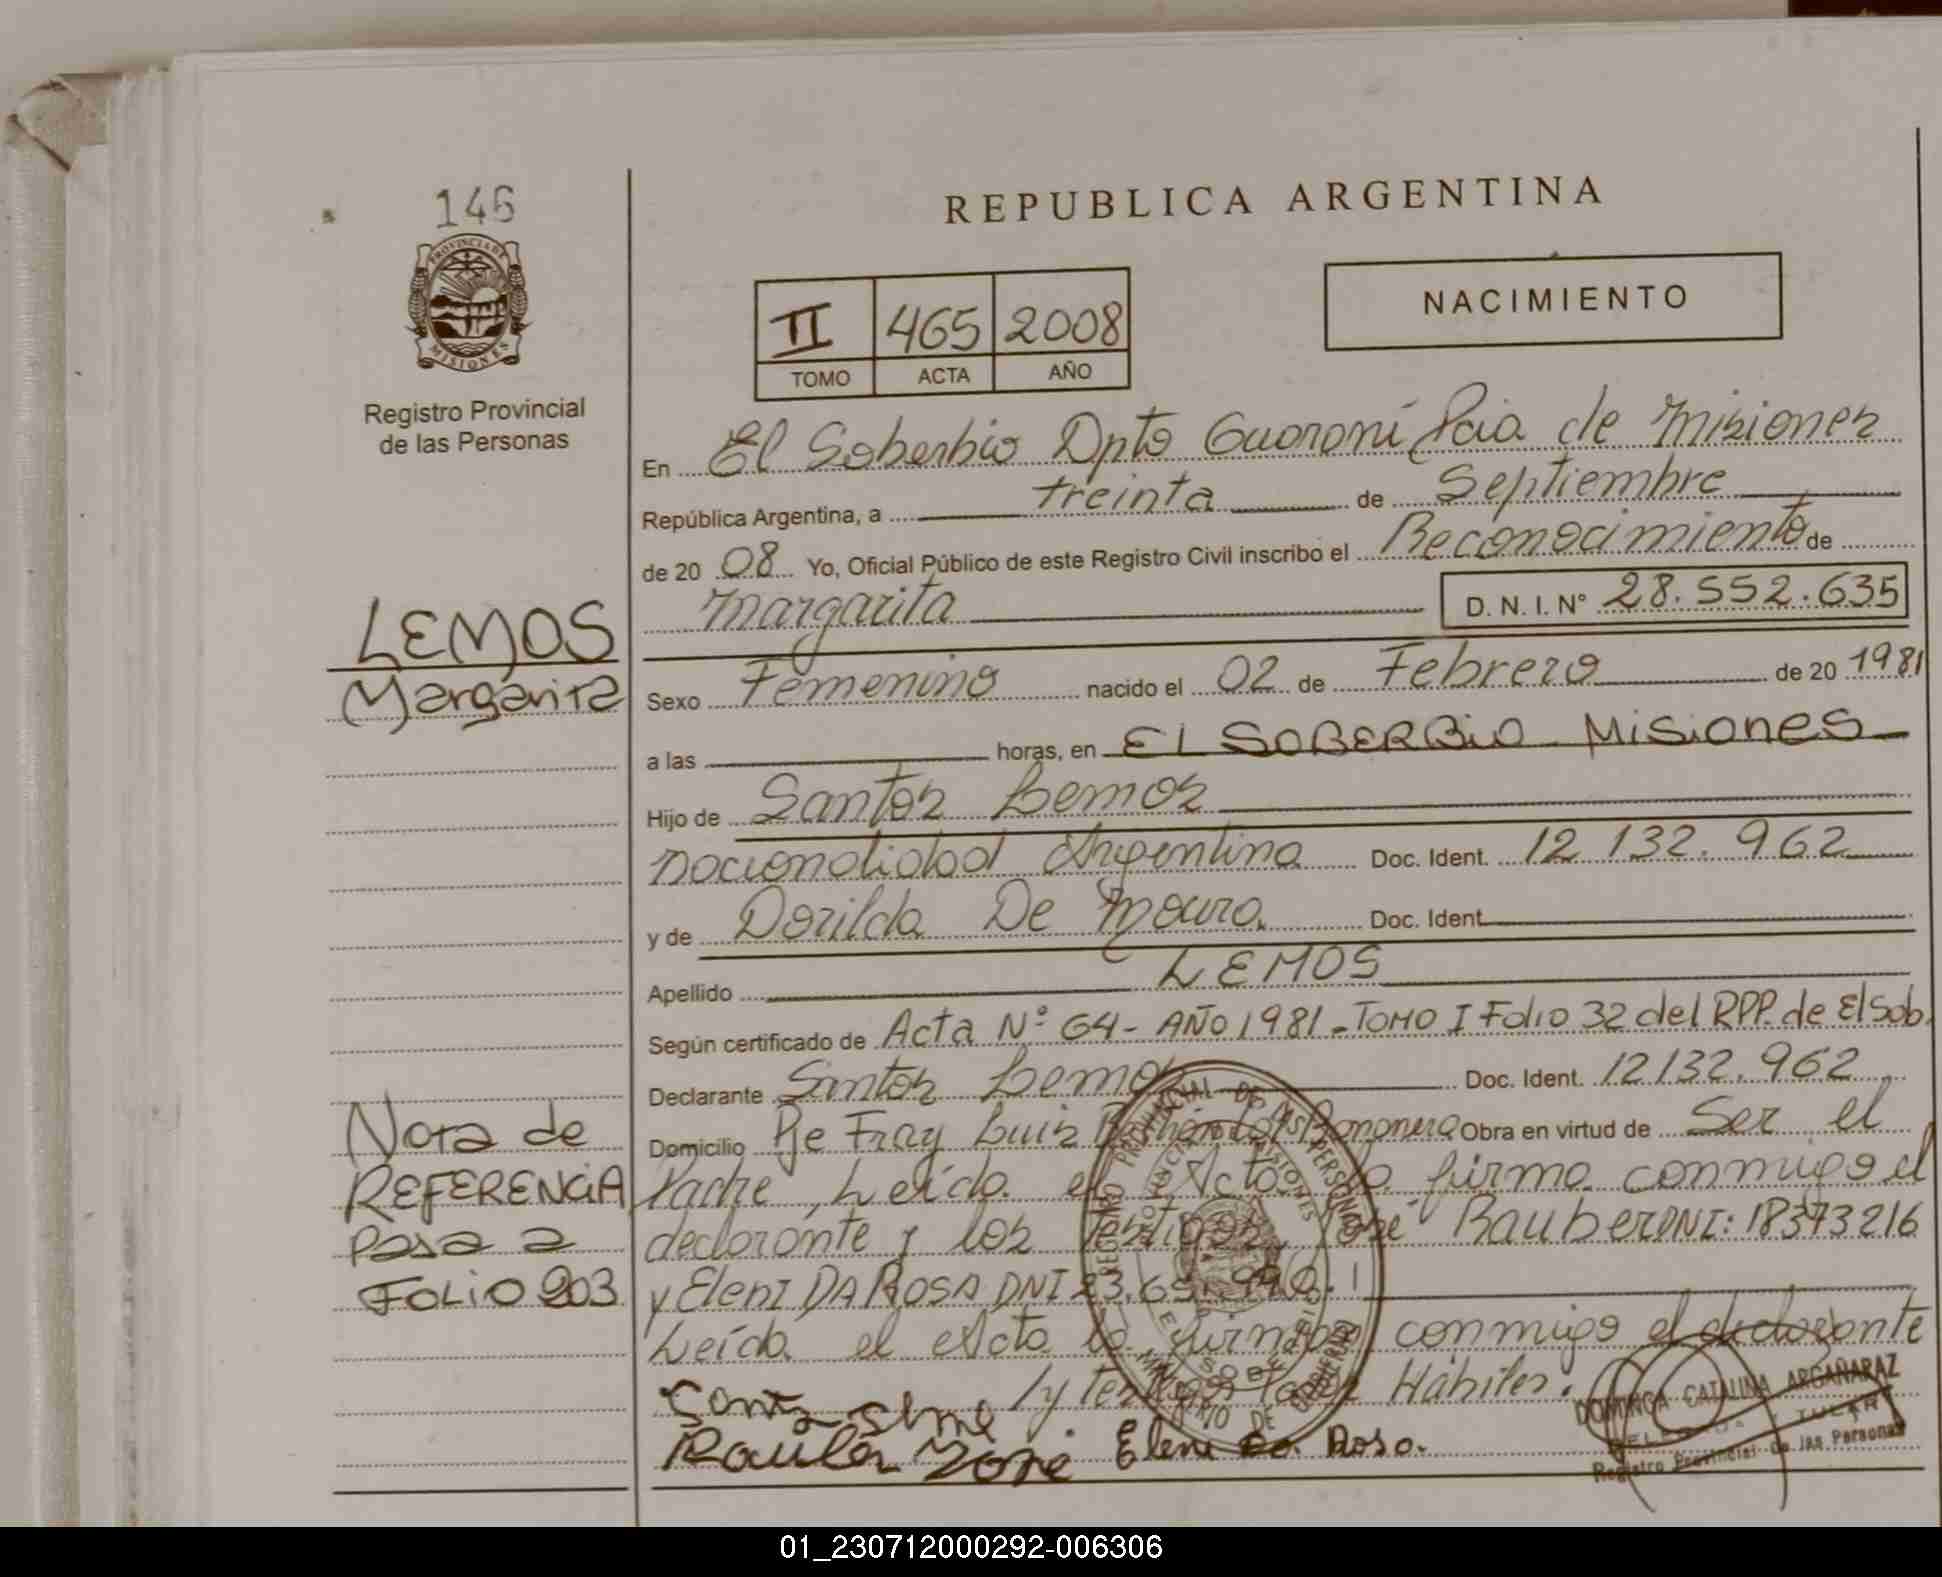 146
PROVINCIA DE
MISIONES
Registro Provincial
de las Personas
REPUBLICA ARGENTINA
NACIMIENTO
II 465 2008
TOMO ACTA AÑO
En El Soberbio Dpto Guaraní Pcia de Misiones
República Argentina, a treinta de Septiembre
de 20 08 Yo, Oficial Público de este Registro Civil inscribo el Reconocimiento de
Margarita D. N. I. N° 28.552.635
LEMOS
Margarita
Sexo Femenino nacido el 02 de Febrero de 20 1981
a las horas, en EL SOBERBIO Misiones
Hijo de Santos Lemos
nacionalidad Argentina Doc. Ident. 12 132.962
y de Dorilda De Moura Doc. Ident.
Apellido LEMOS
Según certificado de Acta N° 64 - AÑO 1981 - TOMO I Folio 32 del RPP. de El Sob.
Declarante Santos Lemos Doc. Ident. 12132.962
Domicilio Pje Fray Luis Obra en virtud de Ser el
Padre, Leída el Acta la firma conmigo el
declarante y los testigos José Rauber DNI: 18373216
y Eleni DA ROSA DNI
Leída el Acta la firman conmigo el declarante
y testigos Hábiles.
Nota de
REFERENCIA
pasa a
FOLIO 203
Rauber José Eleni Da Rosa.
REGISTRO PROVINCIAL DE LAS PERSONAS
MINISTERIO DE GOBIERNO
DOMINGA CATALINA ARGAÑARAZ
DELEGADA TITULAR
Registro Provincial de las Personas
01_230712000292-006306